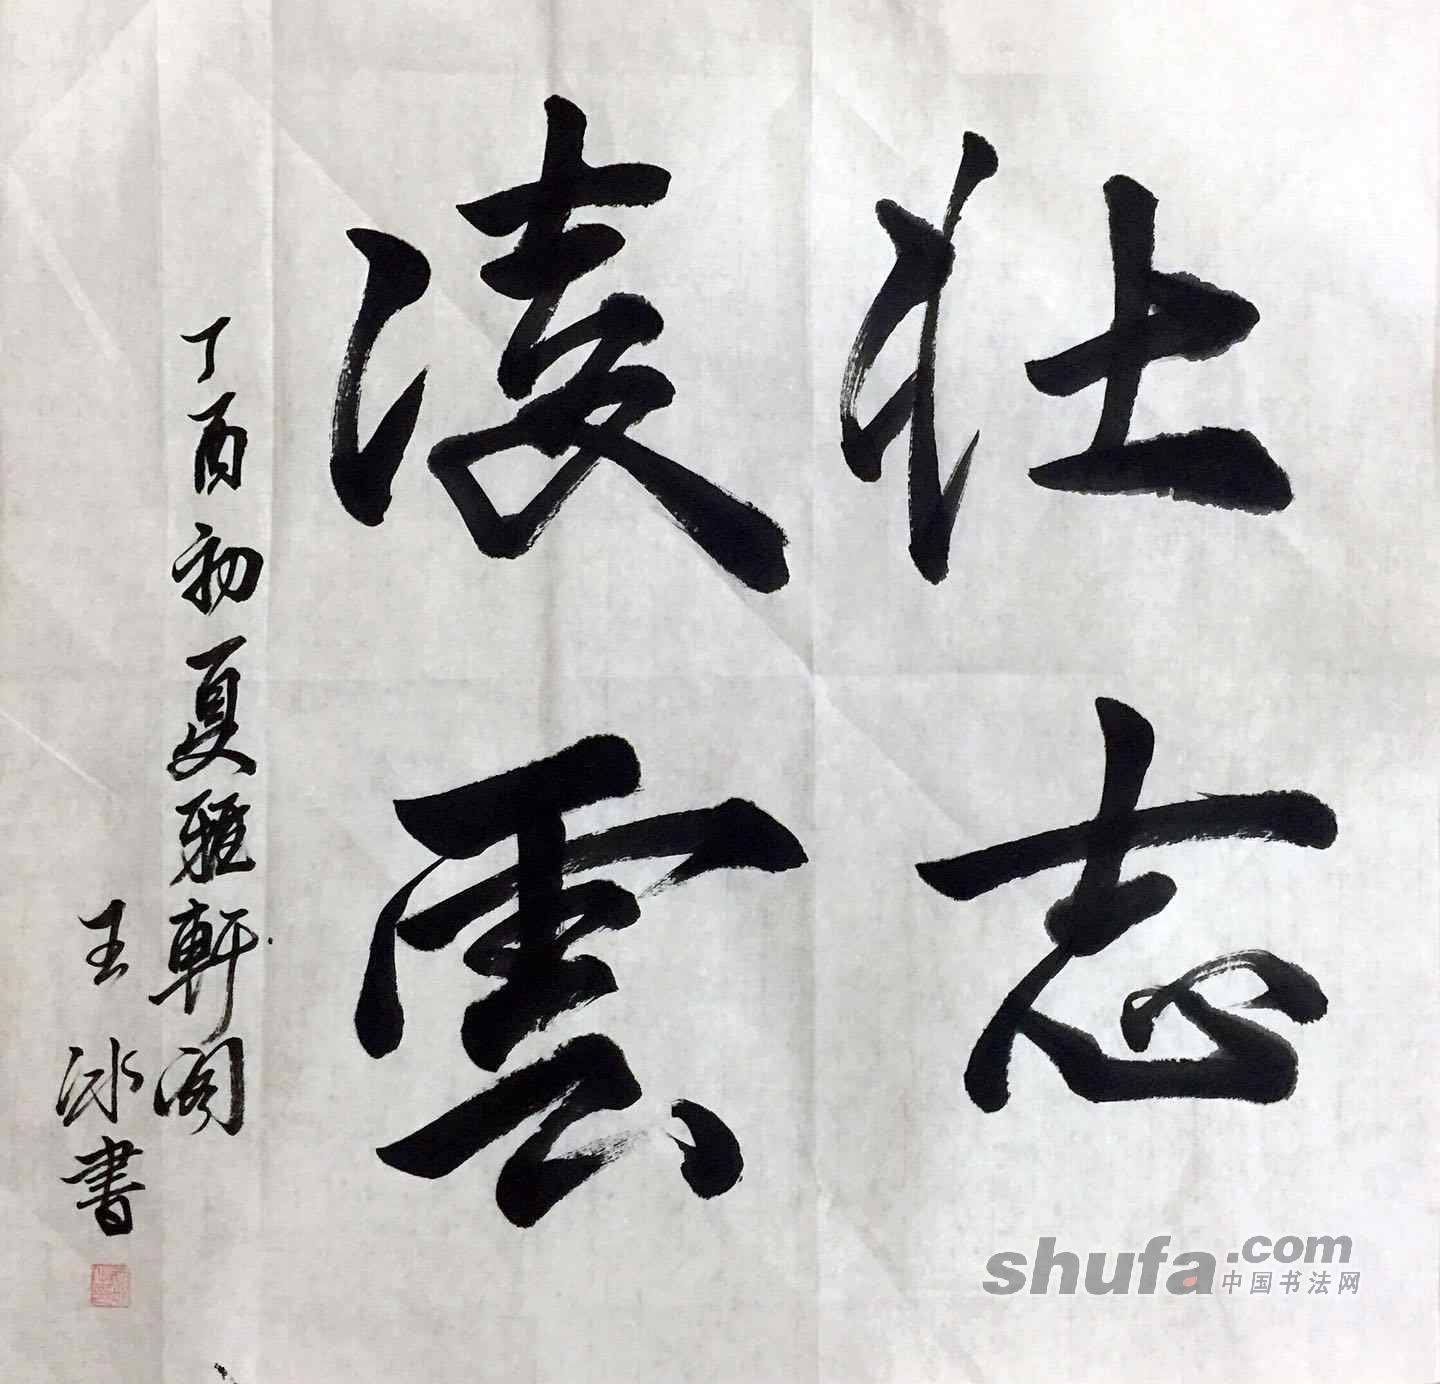 壯志
凌雲
丁酉初夏雅軒閣
王冰書
shufa.com
中国书法网